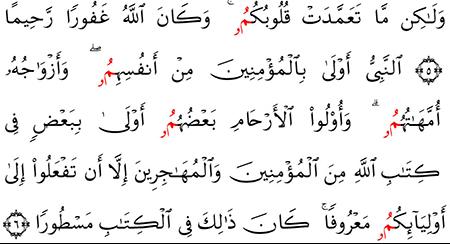 وَلَـٰكِن مَّا تَعَمَّدَتْ قُلُوبُكُمُۥ ۚ وَكَانَ ٱللَّهُ غَفُورًا رَّحِيمًا
۝٥ ٱلنَّبِىُّ أَوْلَىٰ بِٱلْمُؤْمِنِينَ مِنْ أَنفُسِهِمُۥ ۖ وَأَزْوَٰجُهُۥ
أُمَّهَـٰتُهُمُۥ ۗ وَأُو۟لُوا۟ ٱلْأَرْحَامِ بَعْضُهُمُۥ أَوْلَىٰ بِبَعْضٍ فِى
كِتَـٰبِ ٱللَّهِ مِنَ ٱلْمُؤْمِنِينَ وَٱلْمُهَـٰجِرِينَ إِلَّا أَن تَفْعَلُوٓا۟ إِلَىٰٓ
أَوْلِيَآئِكُمُۥ مَعْرُوفًا ۚ كَانَ ذَٰلِكَ فِى ٱلْكِتَـٰبِ مَسْطُورًا ۝٦